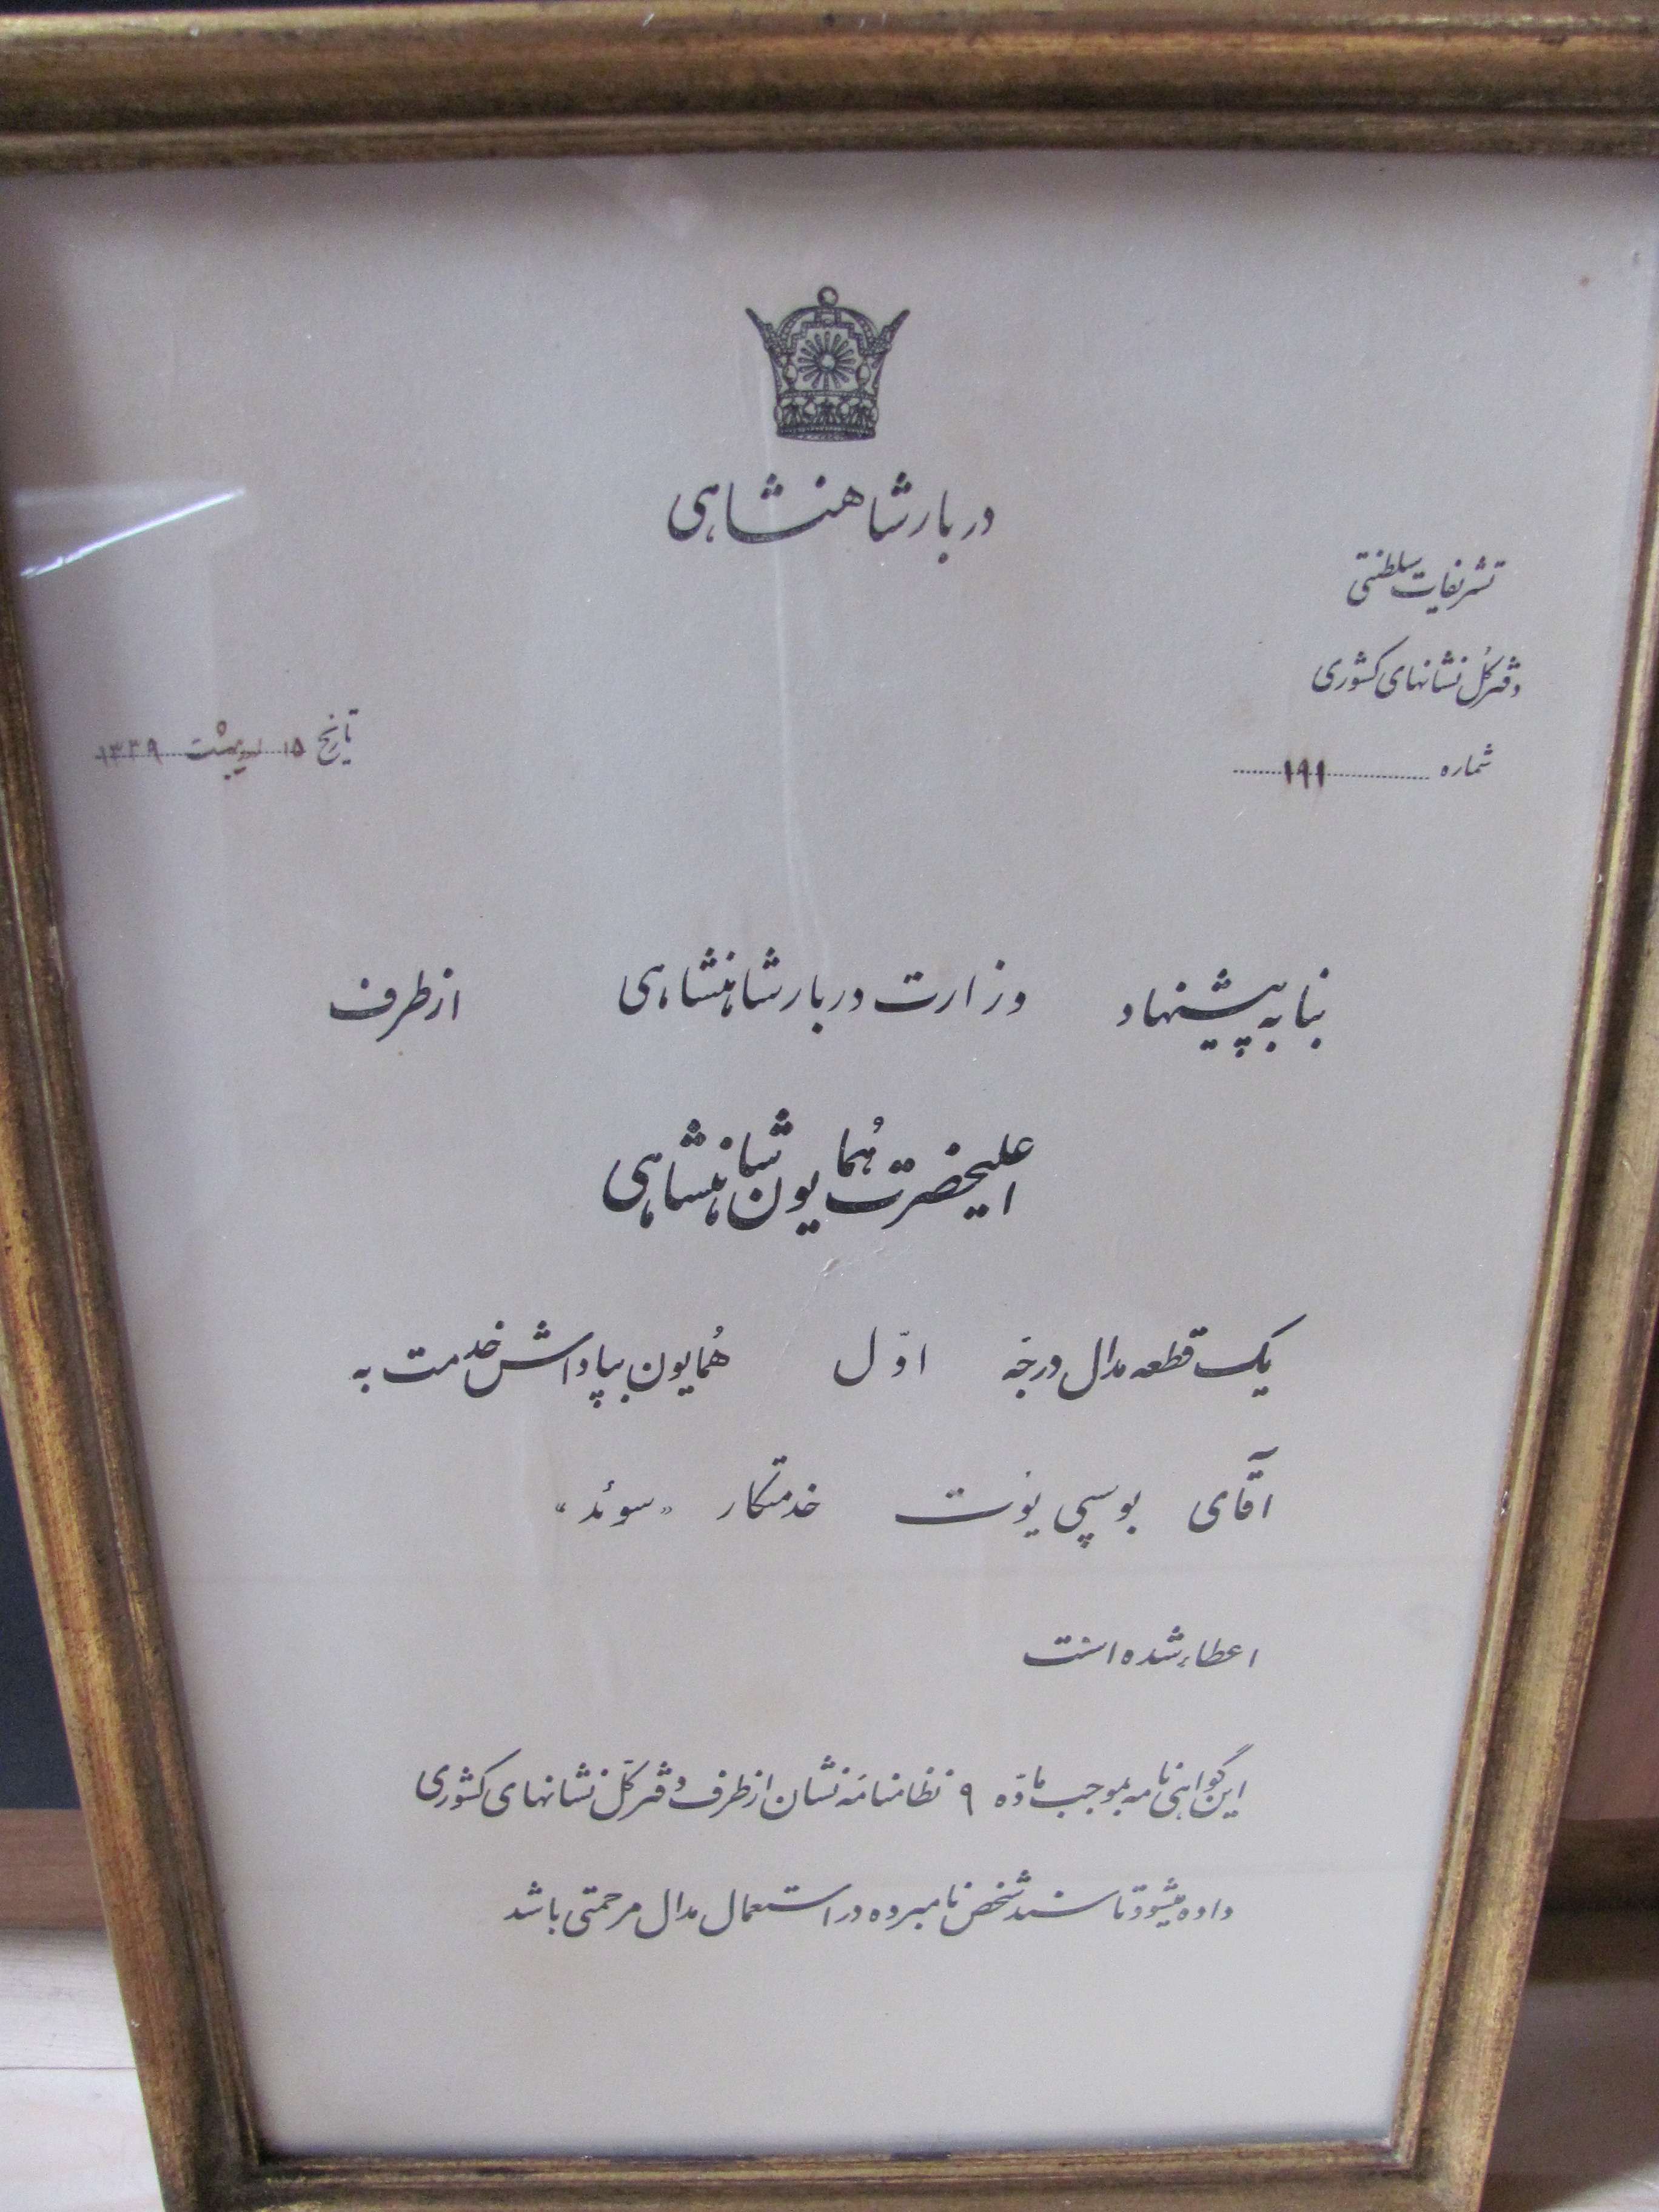 دربار شاهنشاهی
تشریفات سلطنتی
دفتر کل نشانهای کشوری
شماره ۱۹۱
تاریخ ۱۵ اردیبهشت ۱۳۳۹
بنا به پیشنهاد وزارت دربار شاهنشاهی از طرف
اعلیحضرت همایون شاهنشاهی
یک قطعه مدال درجه اوّل هُمایون بپاداش خدمت به
آقای بوسپی یونت خدمتکار «سوئد»
اعطاء شده است
این گواهی نامه بموجب مادّه ۹ نظامنامه نشان از طرف دفتر کلّ نشانهای کشوری
داده میشود تا سند شخص نامبرده در استعمال مدال مرحمتی باشد